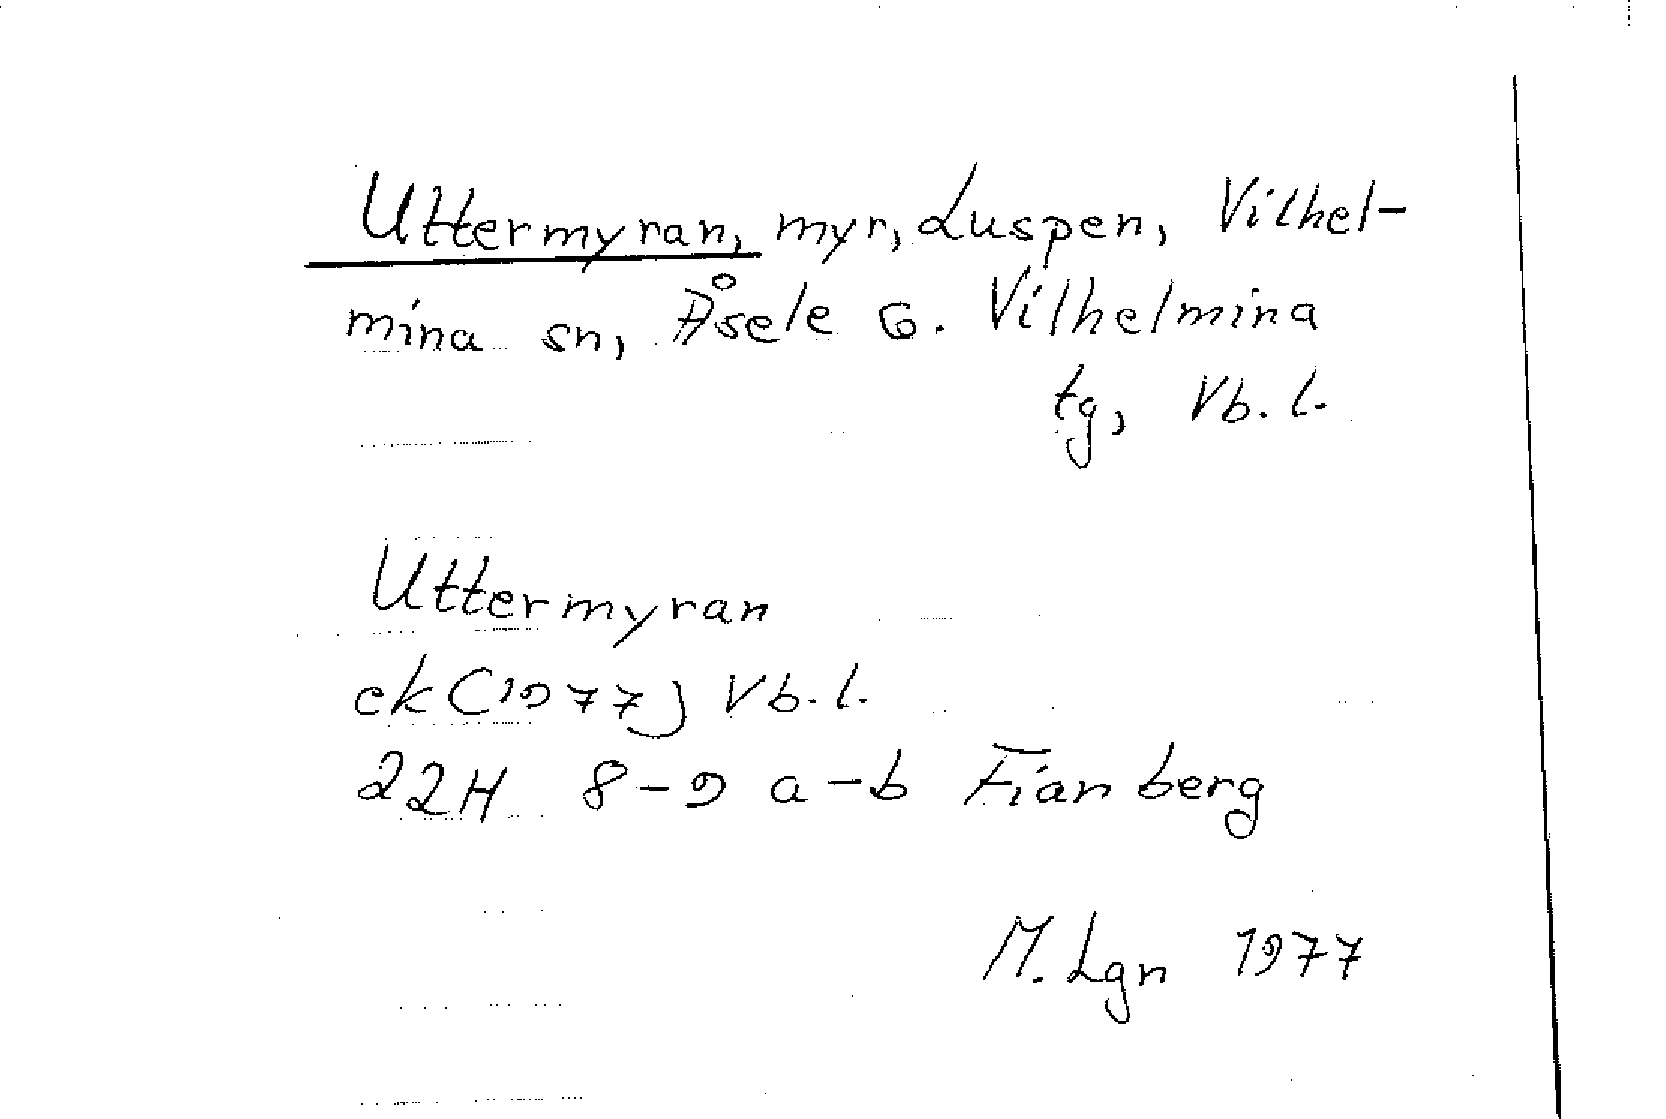 Uttermyran, myr, Luspen, Vilhel-
mina sn, Åsele o. Vilhelmina
tg, Vb. l.
Uttermyran
ek (1977) Vb. l.
22H 8-9 a-b Fianberg
M. Lgn 1977